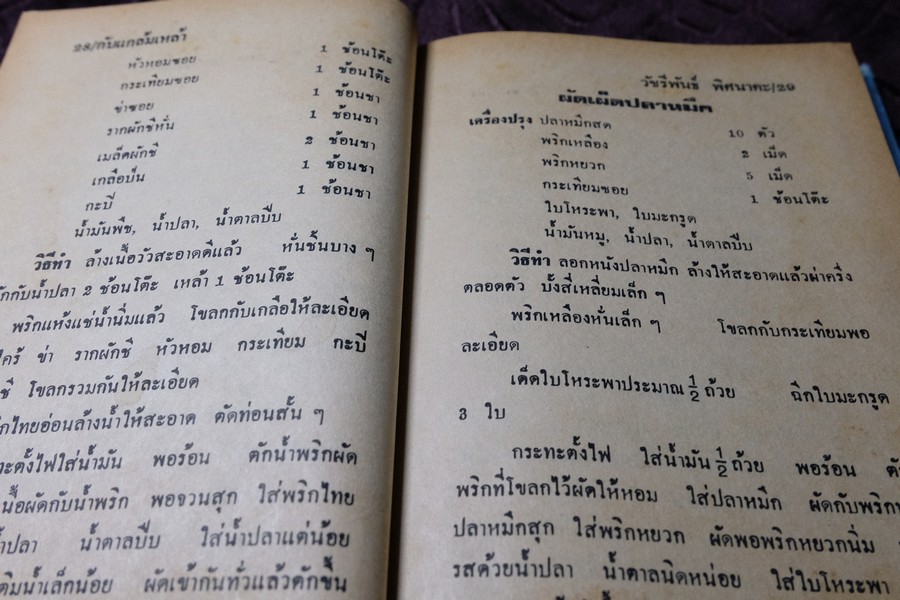 28/กับแกล้มเหล้า
หัวหอมซอย 1 ช้อนโต๊ะ
กระเทียมซอย 1 ช้อนโต๊ะ
ข่าซอย 1 ช้อนชา
รากผักชีหั่น 1 ช้อนชา
เมล็ดผักชี 2 ช้อนชา
เกลือป่น 1 ช้อนชา
กะปิ 1 ช้อนชา
น้ำมันพืช, น้ำปลา, น้ำตาลปี๊บ
วิธีทำ ล้างเนื้อวัวสะอาดดีแล้ว หั่นชิ้นบาง ๆ
กับน้ำปลา 2 ช้อนโต๊ะ เหล้า 1 ช้อนโต๊ะ
พริกแห้งแช่น้ำนิ่มแล้ว โขลกกับเกลือให้ละเอียด
ข่า รากผักชี หัวหอม กระเทียม กะปิ
โขลกรวมกันให้ละเอียด
ไทยอ่อนล้างน้ำให้สะอาด ตัดท่อนสั้น ๆ
ตั้งไฟใส่น้ำมัน พอร้อน ตักน้ำพริกผัด
เนื้อผัดกับน้ำพริก พอจวนสุก ใส่พริกไทย
น้ำปลา น้ำตาลปี๊บ ใส่น้ำปลาแต่น้อย
เติมน้ำเล็กน้อย ผัดเข้ากันทั่วแล้วตักขึ้น
วัชรีพันธ์ พิศนาคะ/29
ผัดเผ็ดปลาหมึก
เครื่องปรุง ปลาหมึกสด 10 ตัว
พริกเหลือง 2 เม็ด
พริกหยวก 5 เม็ด
กระเทียมซอย 1 ช้อนโต๊ะ
ใบโหระพา, ใบมะกรูด
น้ำมันหมู, น้ำปลา, น้ำตาลปี๊บ
วิธีทำ ลอกหนังปลาหมึก ล้างให้สะอาดแล้วผ่าครึ่ง
ตลอดตัว บั้งสี่เหลี่ยมเล็ก ๆ
พริกเหลืองหั่นเล็ก ๆ โขลกกับกระเทียมพอ
ละเอียด
เด็ดใบโหระพาประมาณ ½ ถ้วย ฉีกใบมะกรูด
3 ใบ
กระทะตั้งไฟ ใส่น้ำมัน ½ ถ้วย พอร้อน
พริกที่โขลกไว้ผัดให้หอม ใส่ปลาหมึก ผัดกับพริก
ปลาหมึกสุก ใส่พริกหยวก ผัดพอพริกหยวกนิ่ม
รสด้วยน้ำปลา น้ำตาลนิดหน่อย ใส่ใบโหระพา